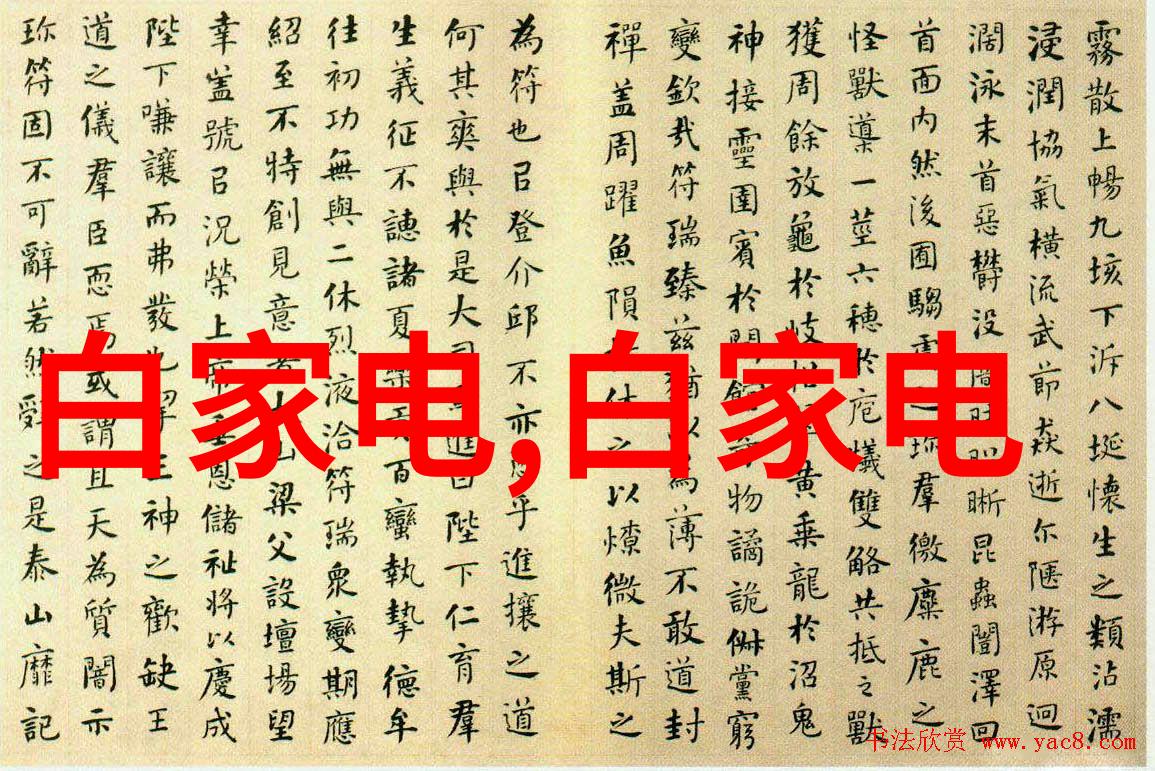 霧散上暢九垓下泝八埏懷生之類沾濡
浸潤協氣橫流武節焱逝尒陿游原迥
濶泳末首惡欝没晰昆蟲闓澤回
首面内然後囿騶虞之珎羣徼麋鹿之
怪獸導一莖六穗於庖犧雙觡共抵之獸
獲周餘放龜於岐招黄乘龍於沼鬼
神接靈圉賓於閒館物譎詭俶黨窮
變欽哉符瑞臻兹猶以為薄不敢道封
禪盖周躍魚隕休之以燎微夫斯之
為符也㠯登介邱不亦恧乎進攘之道
何其爽與於是大司進曰陛下仁育羣
生義征不譓諸夏樂百蠻執摯德牟
往初功無與二休烈液洽符瑞衆變期應
紹至不特創見意者山梁父設壇場望
幸盖號㠯况榮上帝垂恩儲祉將以慶成
陛下嗛讓而弗發也挈三神之歡缺王
道之儀羣臣恧焉或謂且天為質闇示
珎符固不可辭若然辤之是泰山靡記
白家电,白家电
书法欣赏 www.yac8.com